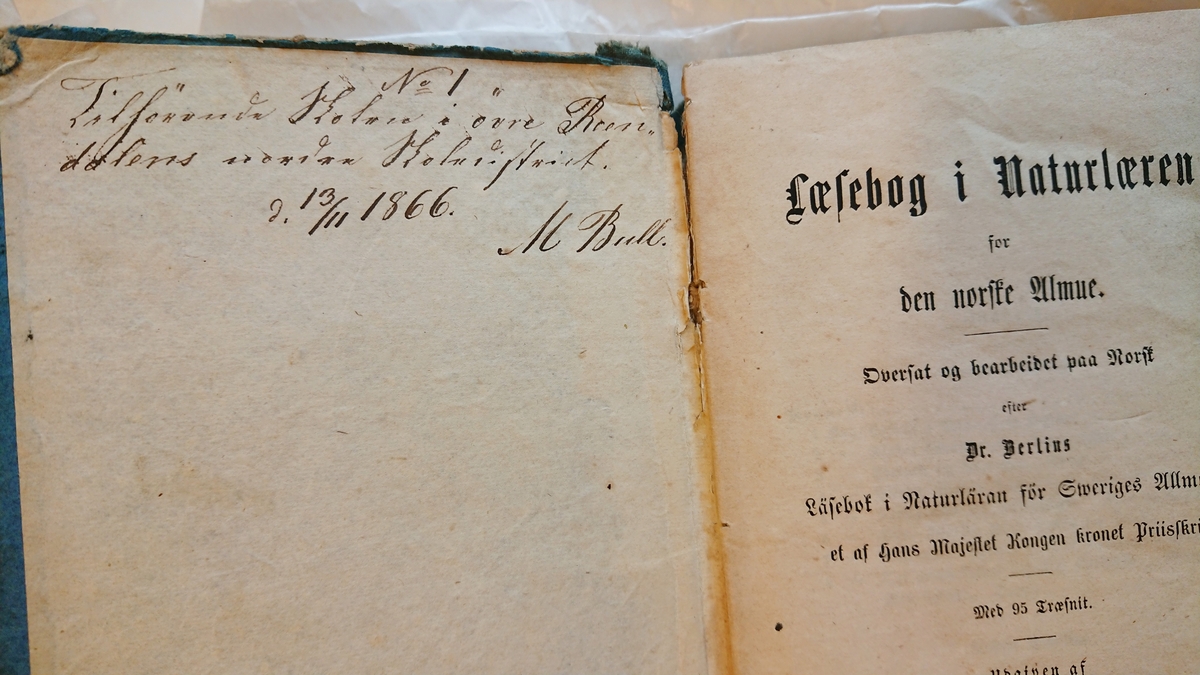 No 1
Tilhörende Skolen i övre Reen-
dalens nordre Skoledistrict.
d. 13/11 1866.
M Bull.
Læsebog i Naturlæren
for
den norske Almue.
Oversat og bearbeidet paa Norsk
efter
Dr. Berlins
Läsebok i Naturläran för Sweriges Allm
et af Hans Majestet Kongen kronet Priisskri
Med 95 Træsnit.
Udgiven af